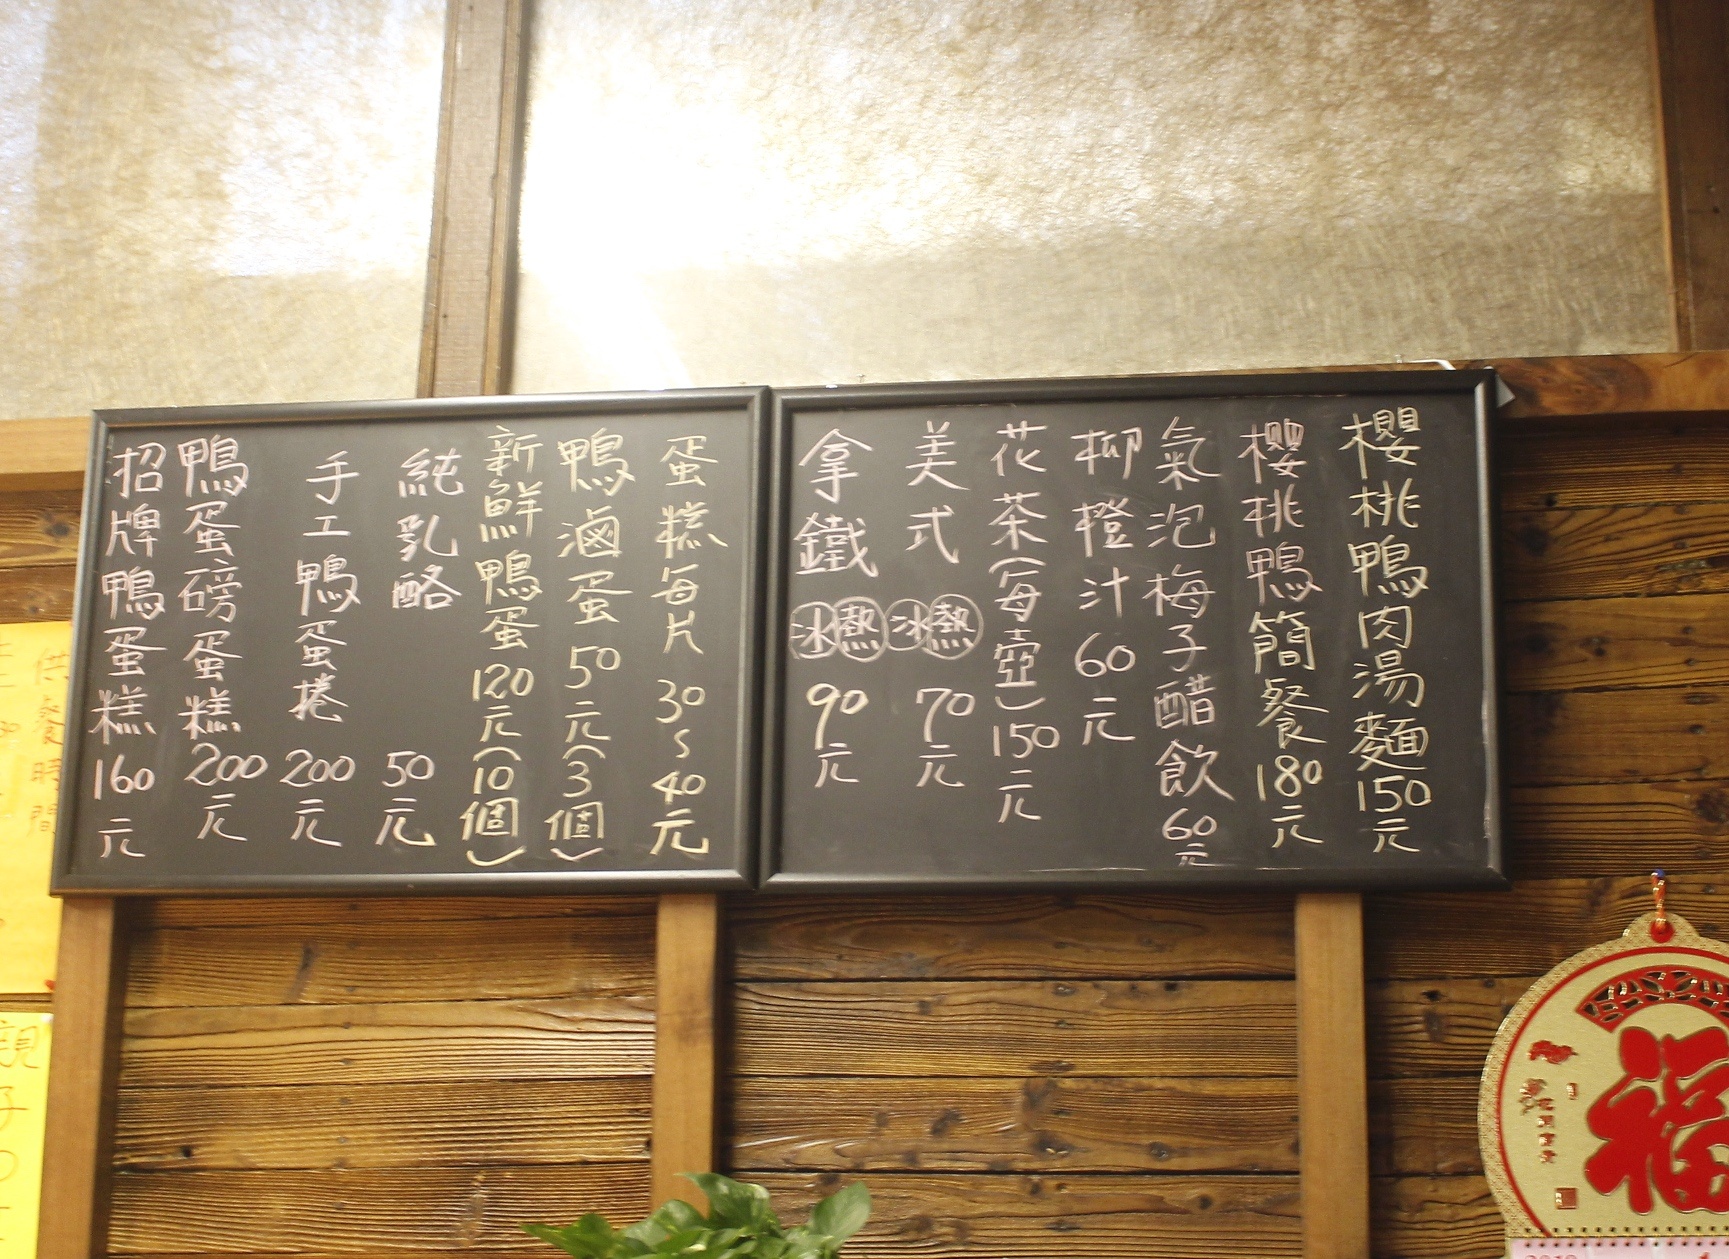 櫻桃鴨肉湯麵150元
櫻桃鴨簡餐180元
氣泡梅子醋飲60元
柳橙汁60元
花茶(每壺)150元
美式冰熱70元
拿鐵冰熱90元
蛋糕每片30~40元
鴨滷蛋50元(3個)
新鮮鴨蛋120元(10個)
純乳酪50元
手工鴨蛋捲200元
鴨蛋磅蛋糕200元
招牌鴨蛋糕160元
供餐時間
親子
福